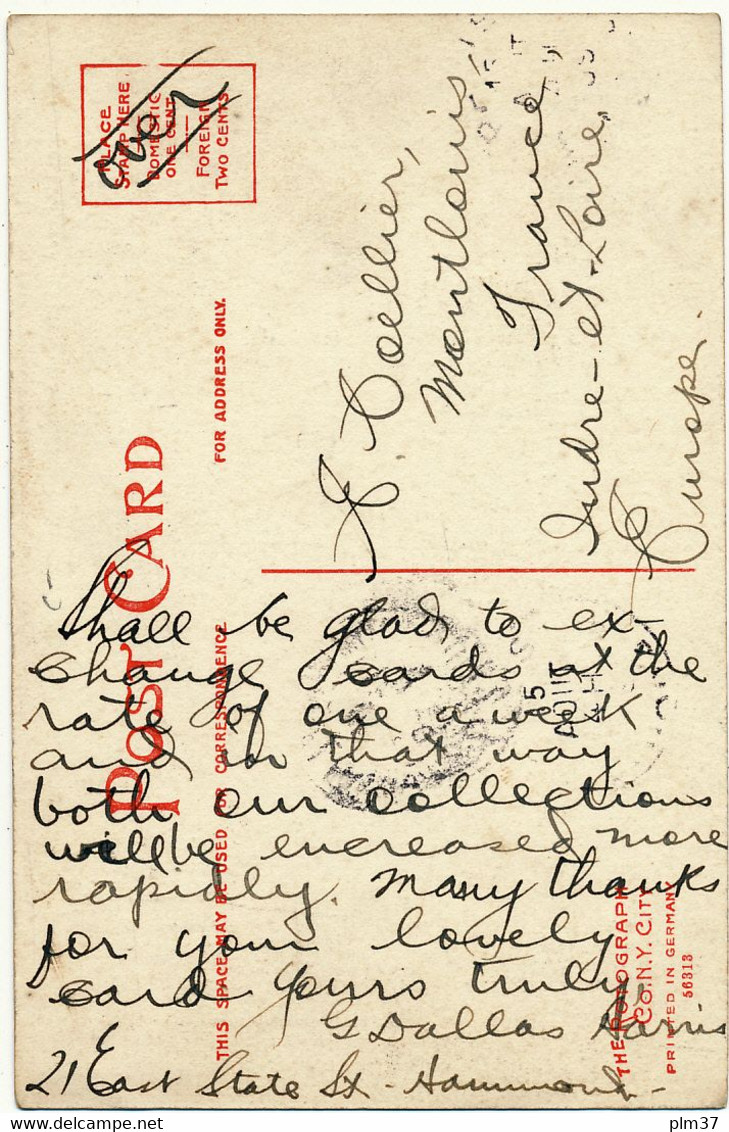 PLACE
STAMP HERE
DOMESTIC
ONE CENT
FOREIGN
TWO CENTS
over
POST CARD
THIS SPACE MAY BE USED FOR CORRESPONDENCE
FOR ADDRESS ONLY.
L Collier,
Montlouis,
France
Indre-et-Loire
Europe.
Shall be glad to ex-
change cards at the
rate of one a week
and in that way
both our collections
will be encreased more
rapidly. Many thanks
for your lovely
card yours truly,
G Dallas Harris
21 East State St - Hammond -
THE ROTOGRAPH
CO. N.Y. CITY
PRINTED IN GERMANY
56313
plm37